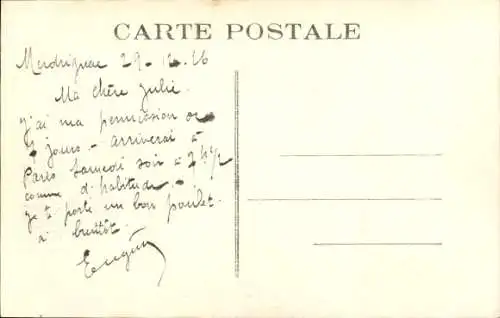 CARTE POSTALE
Merdrignac 29-12-26
Ma chère Julie
J'ai ma permission de
4 jours - arriverai à
Paris Samedi soir à 7h 1/2
comme d'habitude.-
je te porte un bon poulet.
à bientôt.
Eugén